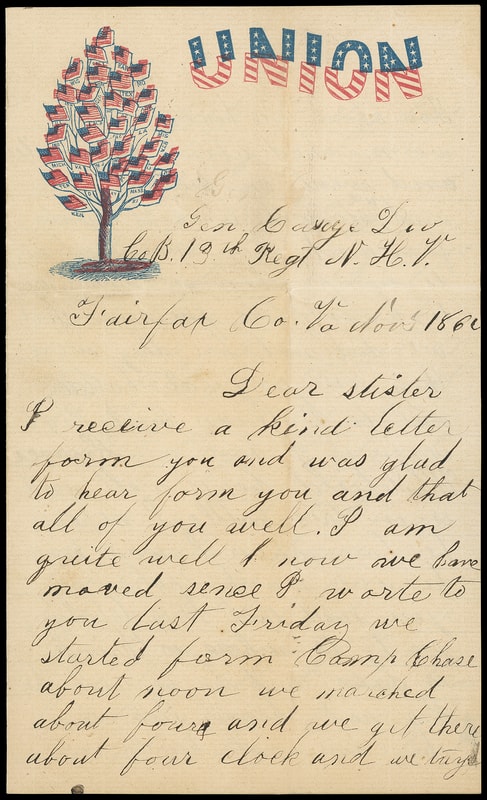 UNION
Gen Casye Div
Co B. 13th Regt N. H. V.
Fairfax Co. Va Nov 186
Dear stister
I receive a kind letter
form you and was glad
to hear form you and that
all of you well. I am
quite well I now we have
moved sence I worte to
you last Friday we
started form Camp Chase
about noon we marched
about four and we get there
about four clock and we